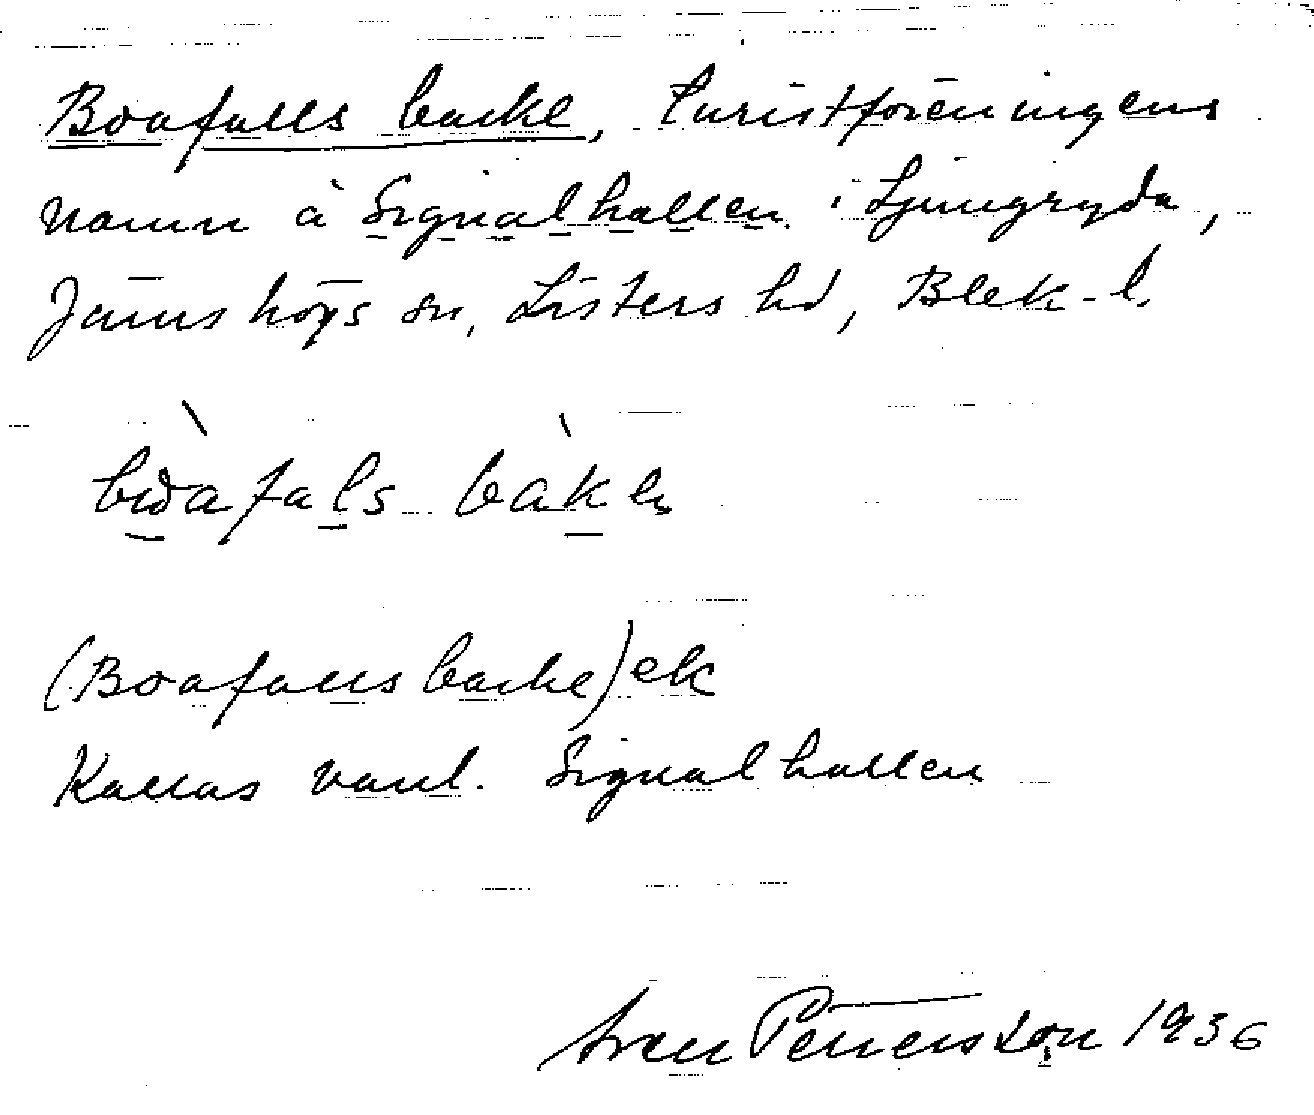 Boafalls backe, turistföreningens
namn å Signalhallen i Ljungryda,
Jämshögs sn, Listers hd, Blek. l.
(Boafalls backe) ek
Kallas vanl. Signalhallen
Sven Pettersson 1936